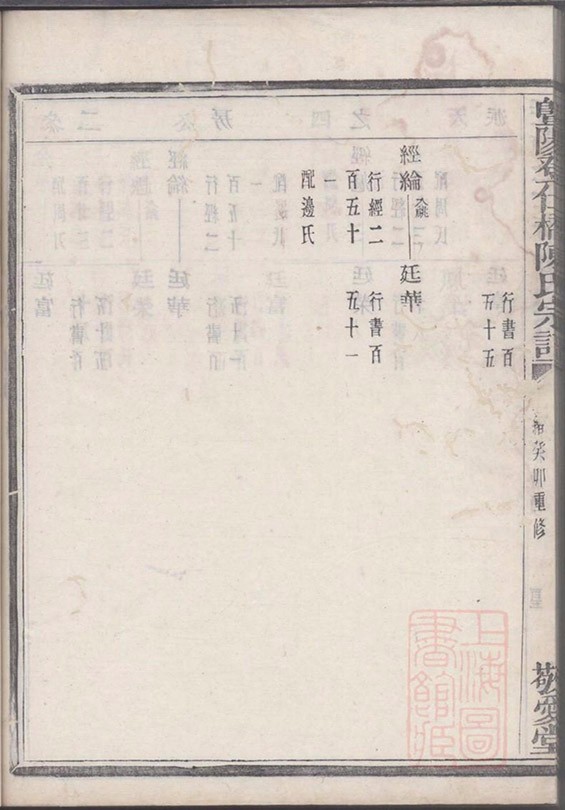 陽
橋陳氏宗譜
癸卯重修
敬愛堂
行書百
五十五
經綸
廷華
行經二
百五十
配邊氏
行書百
五十一
上海圖
書館藏